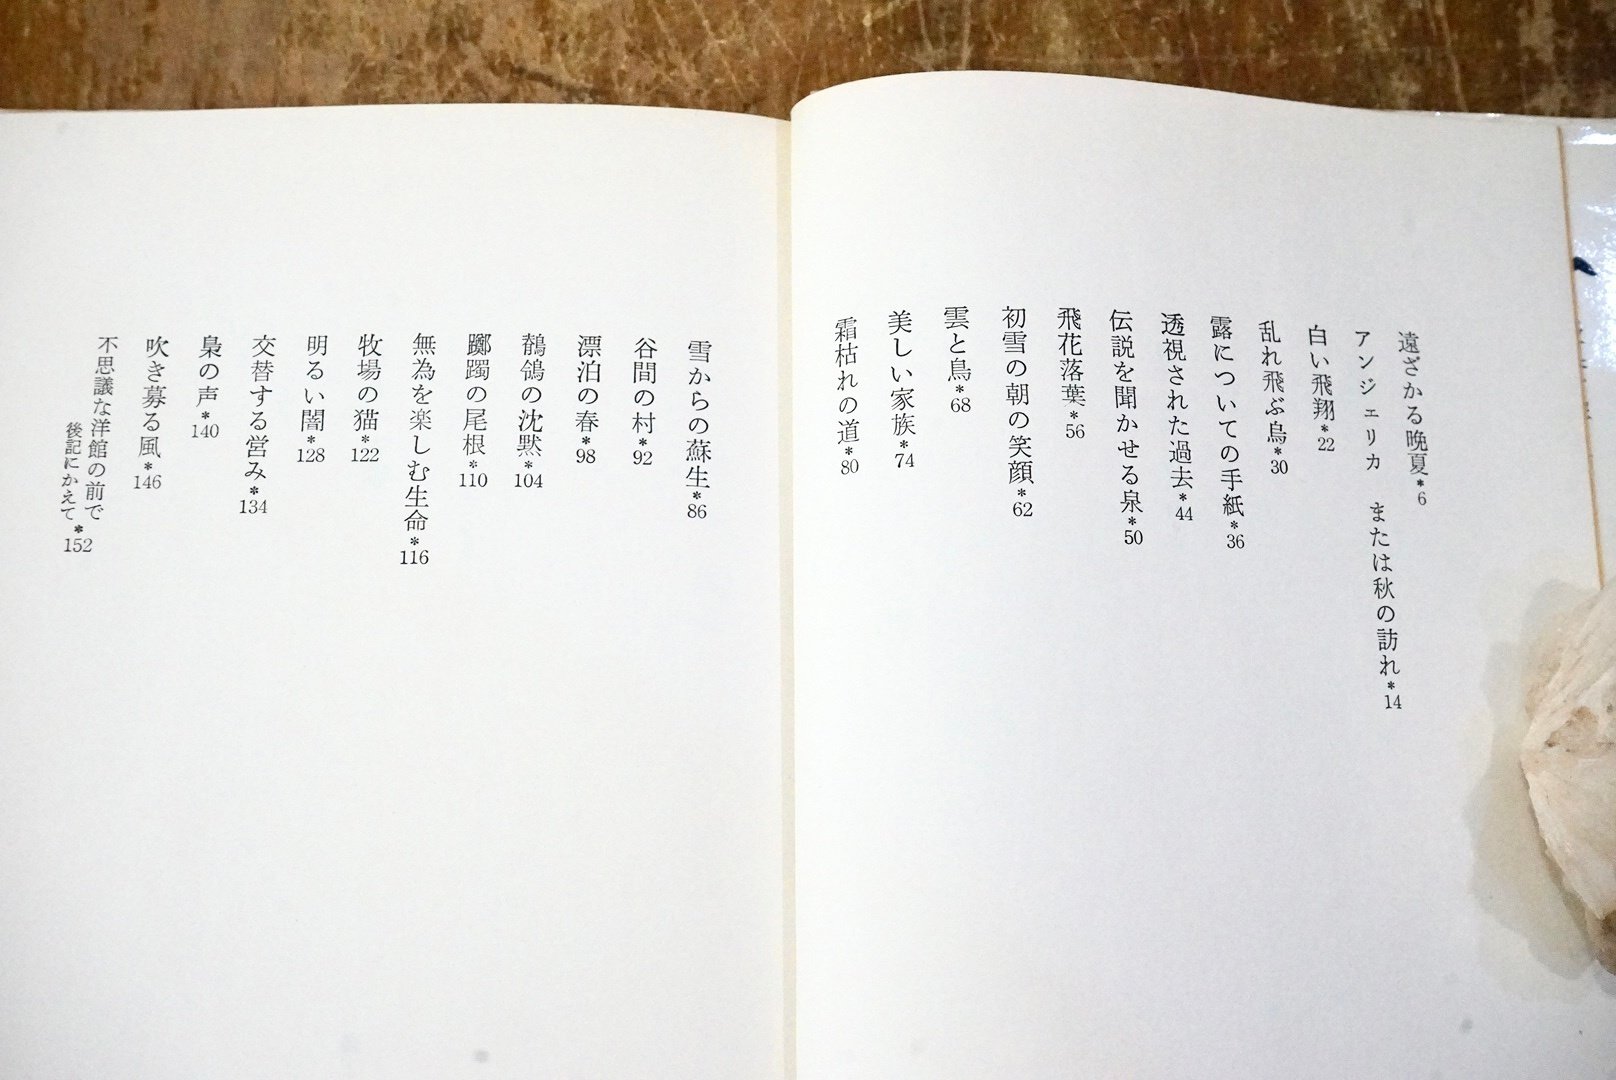 遠ざかる晩夏*6
アンジェリカ または秋の訪れ*14
白い飛翔*22
乱れ飛ぶ烏*30
露についての手紙*36
透視された過去*44
伝説を聞かせる泉*50
飛花落葉*56
初雪の朝の笑顔*62
雲と鳥*68
美しい家族*74
霜枯れの道*80
雪からの蘇生*86
谷間の村*92
漂泊の春*98
鶺鴒の沈黙*104
躑躅の尾根*110
無為を楽しむ生命*116
牧場の猫*122
明るい闇*128
交替する営み*134
梟の声*140
吹き募る風*146
不思議な洋館の前で
後記にかえて*152